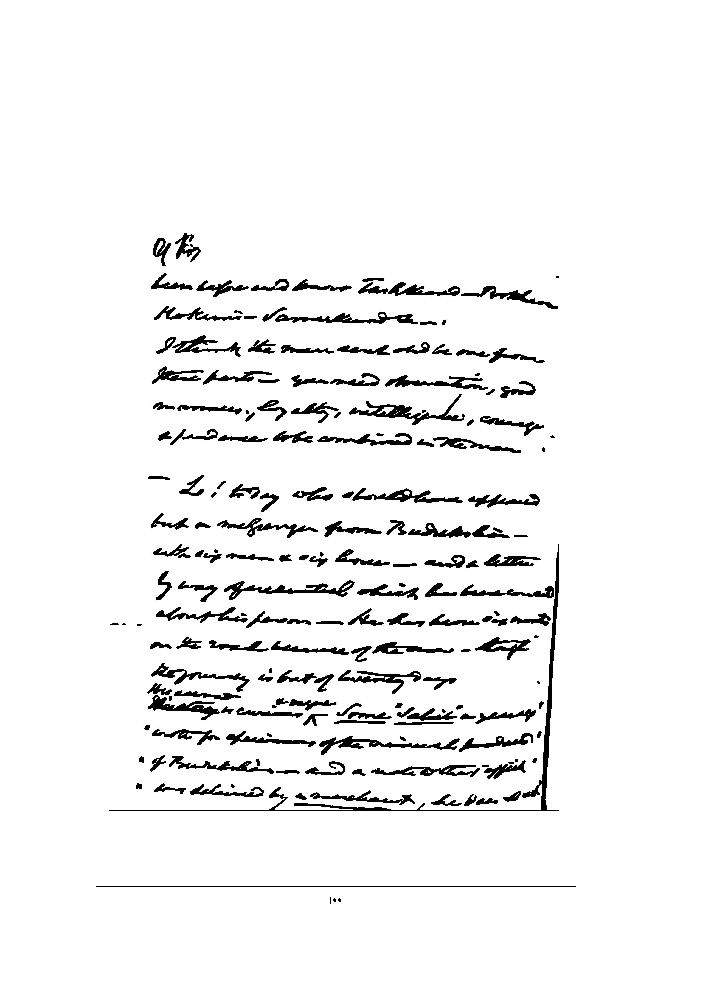 been before and know Tashkend — Bokhara
Kokund — Samurkund &c —.
I think the man sent shd be one from
these parts — you need observation, good
manners, loyalty, intelligence, courage
& prudence to be combined in the man.
— Lo! today who should have appeared
but a messenger from Budukshan —
with six men & six horses — and a letter
by way of credential which has been
about his person — He has been six months
on the road because of the snow — though
the journey is but of twenty days
His account
is curious ^ Some "Sahib" a year ago
" wrote for specimens of the mineral products "
" of Budukshan — and a note to that effect "
" was delivered by a merchant, he does not
١٠٠